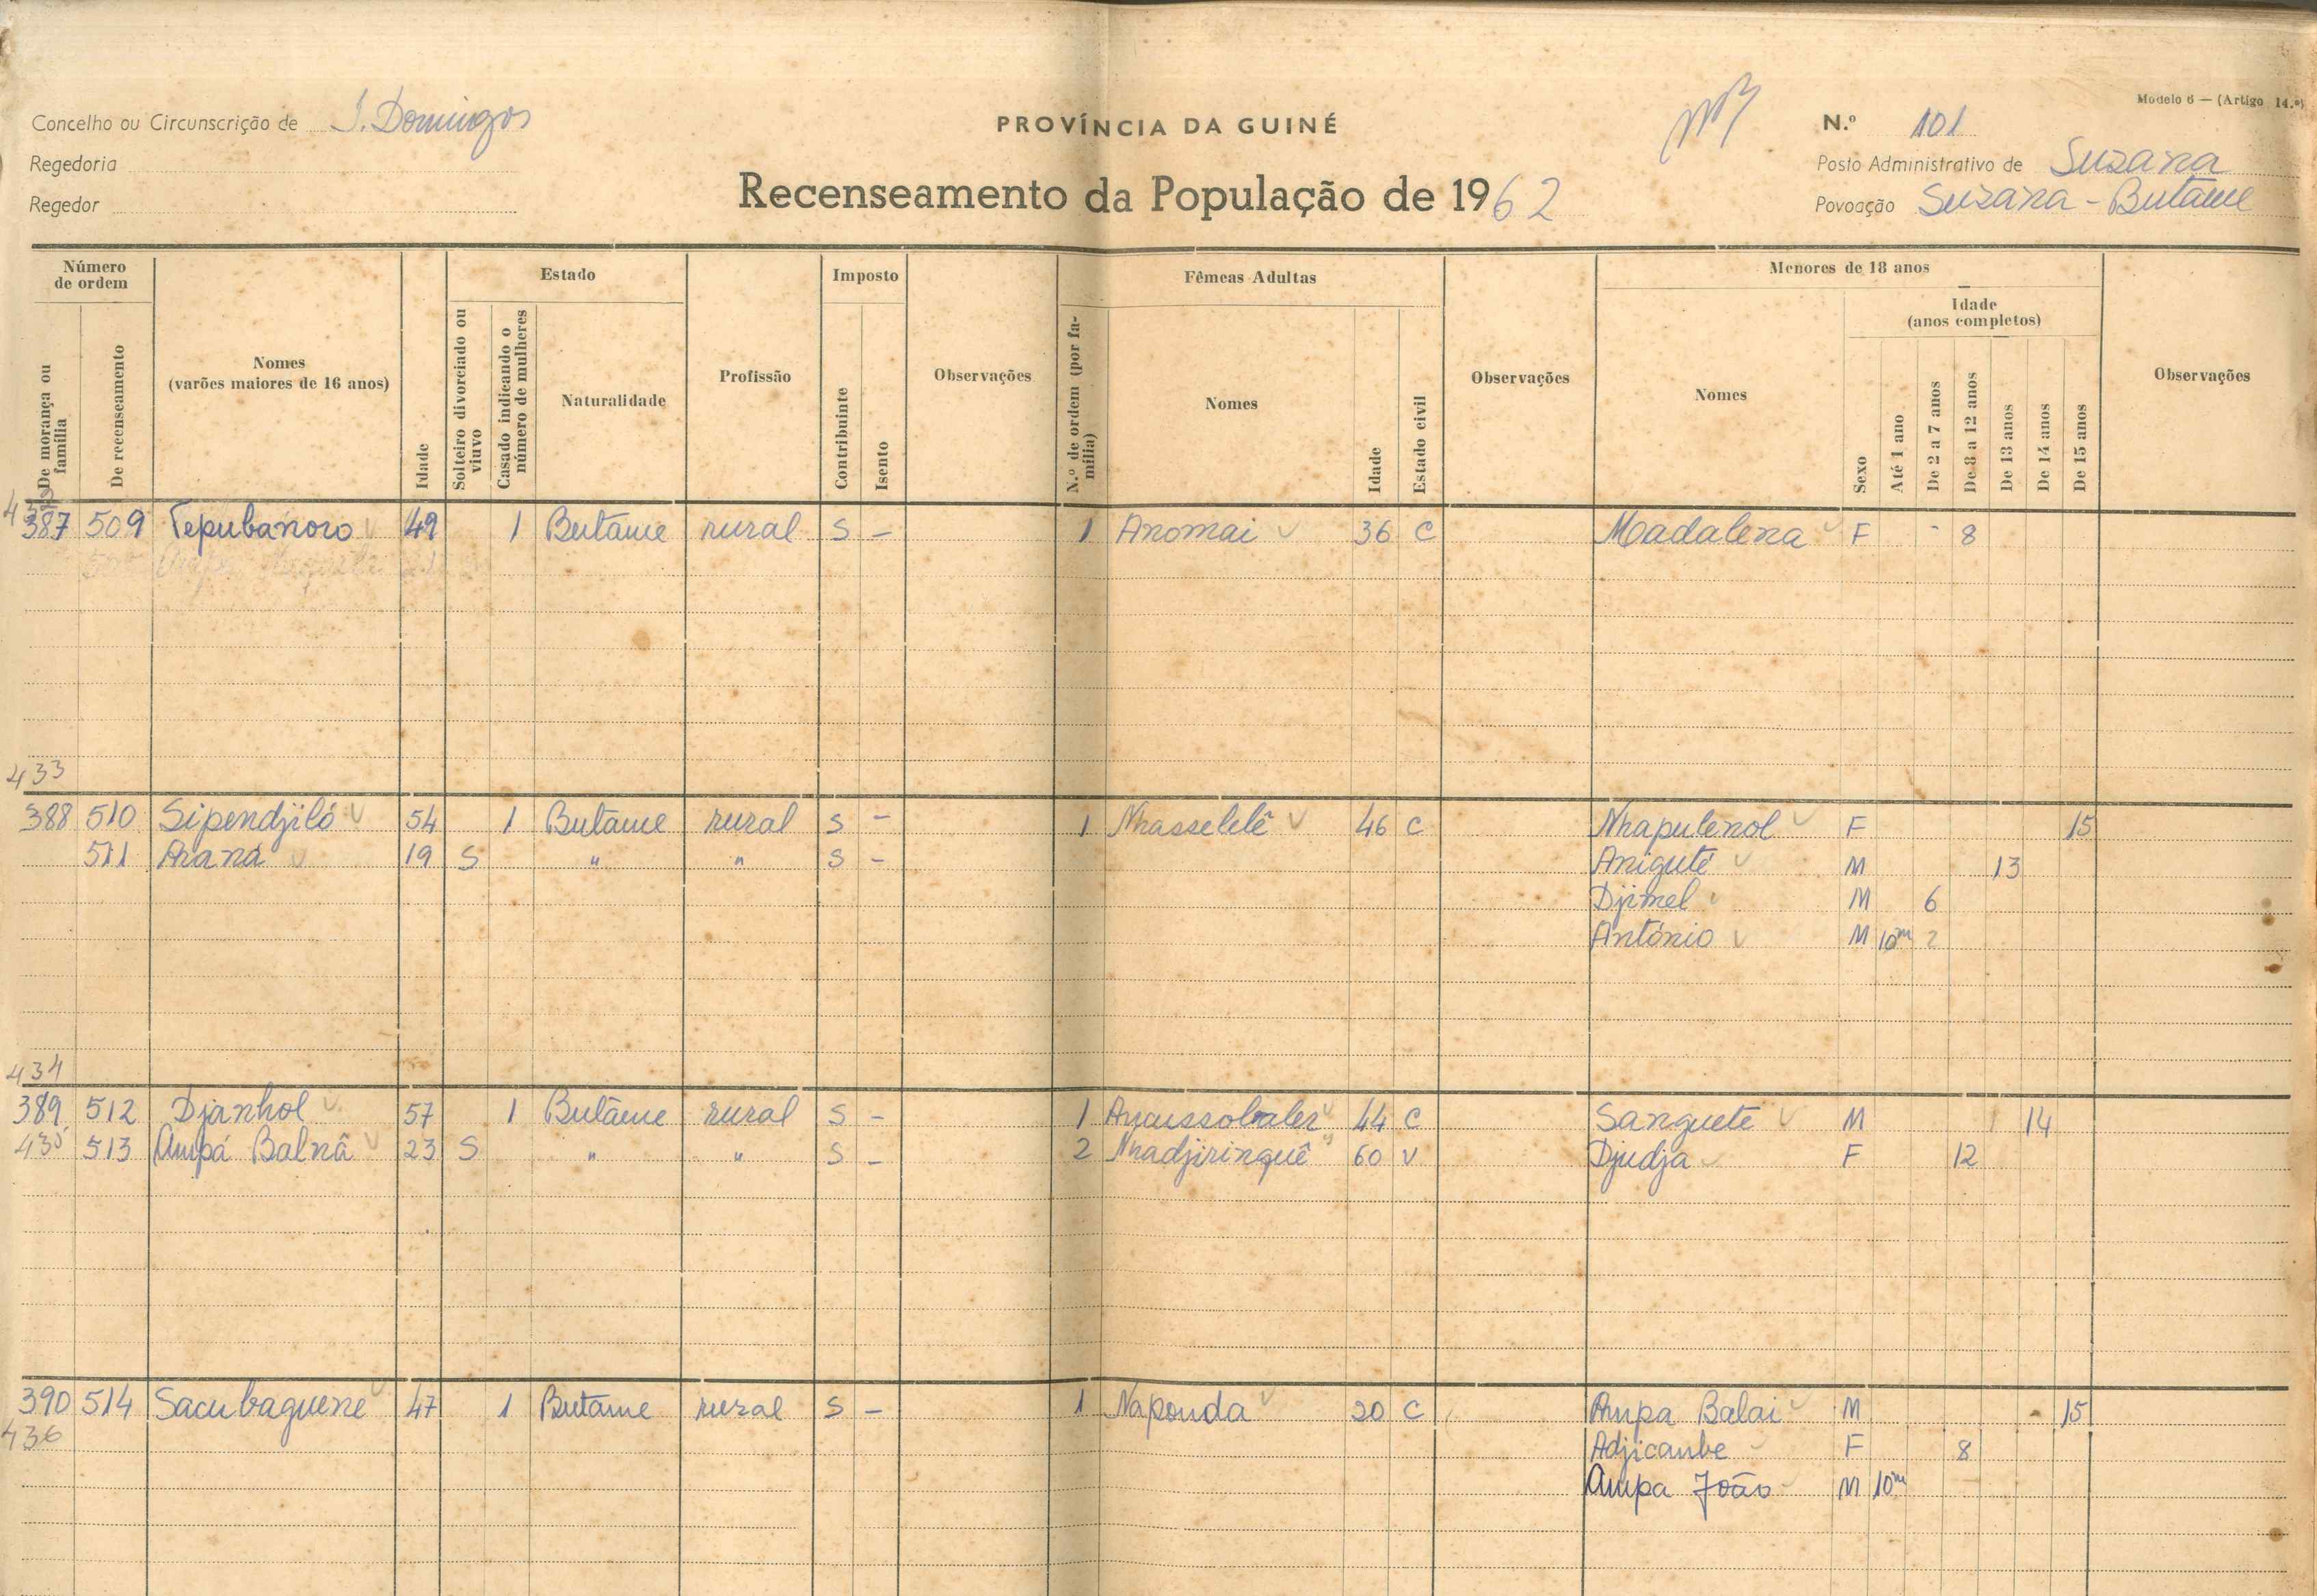 Modelo 6 — (Artigo 14.º)
Concelho ou Circunscrição de S. Domingos
PROVÍNCIA DA GUINÉ
N.º 101
Regedoria
Posto Administrativo de Suzana
Regedor
Recenseamento da População de 1962
Povoação Suzana - Butame
Número de ordem
De morança ou família
De recenseamento
Nomes
(varões maiores de 16 anos)
Idade
Estado
Solteiro divorciado ou viuvo
Casado indicando o número de mulheres
Naturalidade
Profissão
Imposto
Contribuinte
Isento
Observações
Fêmeas Adultas
N.º de ordem (por família)
Nomes
Idade
Estado civil
Observações
Menores de 18 anos
Nomes
Sexo
Idade
(anos completos)
Até 1 ano
De 2 a 7 anos
De 8 a 12 anos
De 13 anos
De 14 anos
De 15 anos
Observações
387 509 Tepubanoro 49 1 Butame rural S - 1 Anomai 36 C Madalena F - 8
433
388 510 Sipendjiló 54 1 Butame rural S - 1 Nhasselelê 46 C Nhapulenol F 15
511 Araná 19 S " " S - Aniguté M 13
Djimel M 6
António M 10m 2
434
389 512 Djanhol 57 1 Butame rural S - 1 44 C Sanguete M 14
435 513 Ampá Balnâ 23 S " " S - 2 Nhadjiringuê 60 V Djudja F 12
390 514 Sacubaguene 47 1 Butame rural S - 1 Naponda 20 C Ampa Balai M 15
436 Adjicambe F 8
Ampa João M 10m